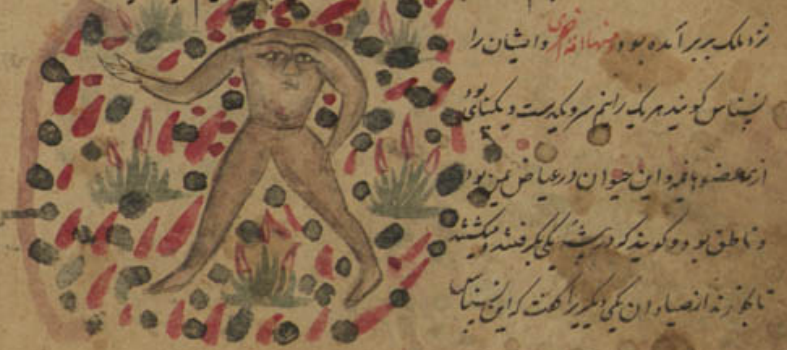 نزد ملک بربر آمده بود و منها امة اخری و ایشان را
نسناس گویند هر یک را نیم سر و یکدست و یکپای بود
از همه عضوها فرد و این حیوان در غیاض یمن بود
و ناطق بود و گویند که در بیشه یکی بگرفتند و میکشتند
تا بخورند از صیادان یکی دیگری را گفت که این نسناس